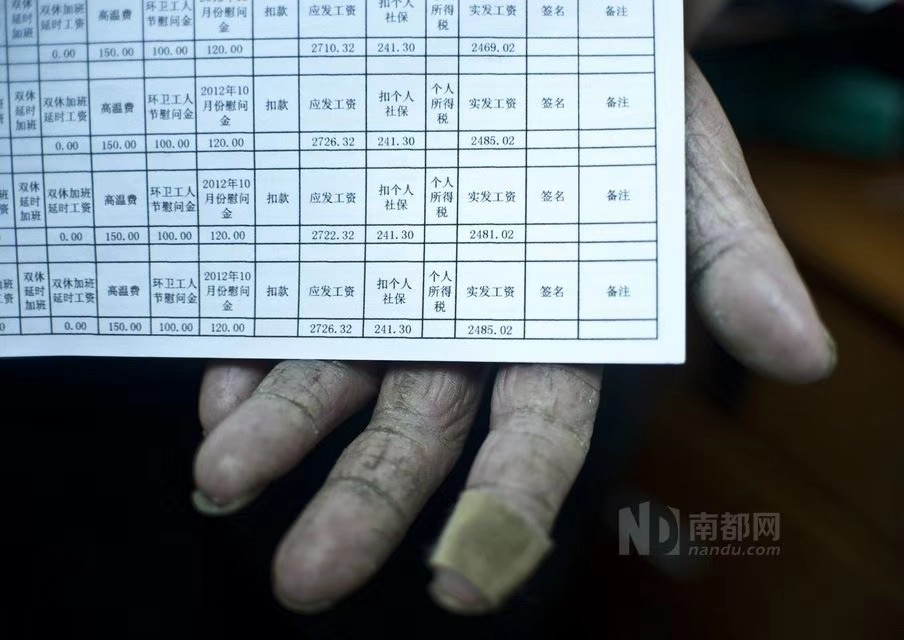 双休
延时
加班
双休加班
延时工资
高温费
环卫工人
节慰问金
月份慰问
金
扣款
应发工资
扣个人
社保
所得
税
实发工资
签名
备注
0.00 150.00 100.00 120.00 2710.32 241.30 2469.02
双休
延时
加班
双休加班
延时工资
高温费
环卫工人
节慰问金
2012年10
月份慰问
金
扣款
应发工资
扣个人
社保
个人
所得
税
实发工资
签名
备注
0.00 150.00 100.00 120.00 2726.32 241.30 2485.02
班
资
双休
延时
加班
双休加班
延时工资
高温费
环卫工人
节慰问金
2012年10
月份慰问
金
扣款
应发工资
扣个人
社保
个人
所得
税
实发工资
签名
备注
0.00 150.00 100.00 120.00 2722.32 241.30 2481.02
班
资
双休
延时
加班
双休加班
延时工资
高温费
环卫工人
节慰问金
2012年10
月份慰问
金
扣款
应发工资
扣个人
社保
个人
所得
税
实发工资
签名
备注
0 0.00 150.00 100.00 120.00 2726.32 241.30 2485.02
ND 南都网
nandu.com